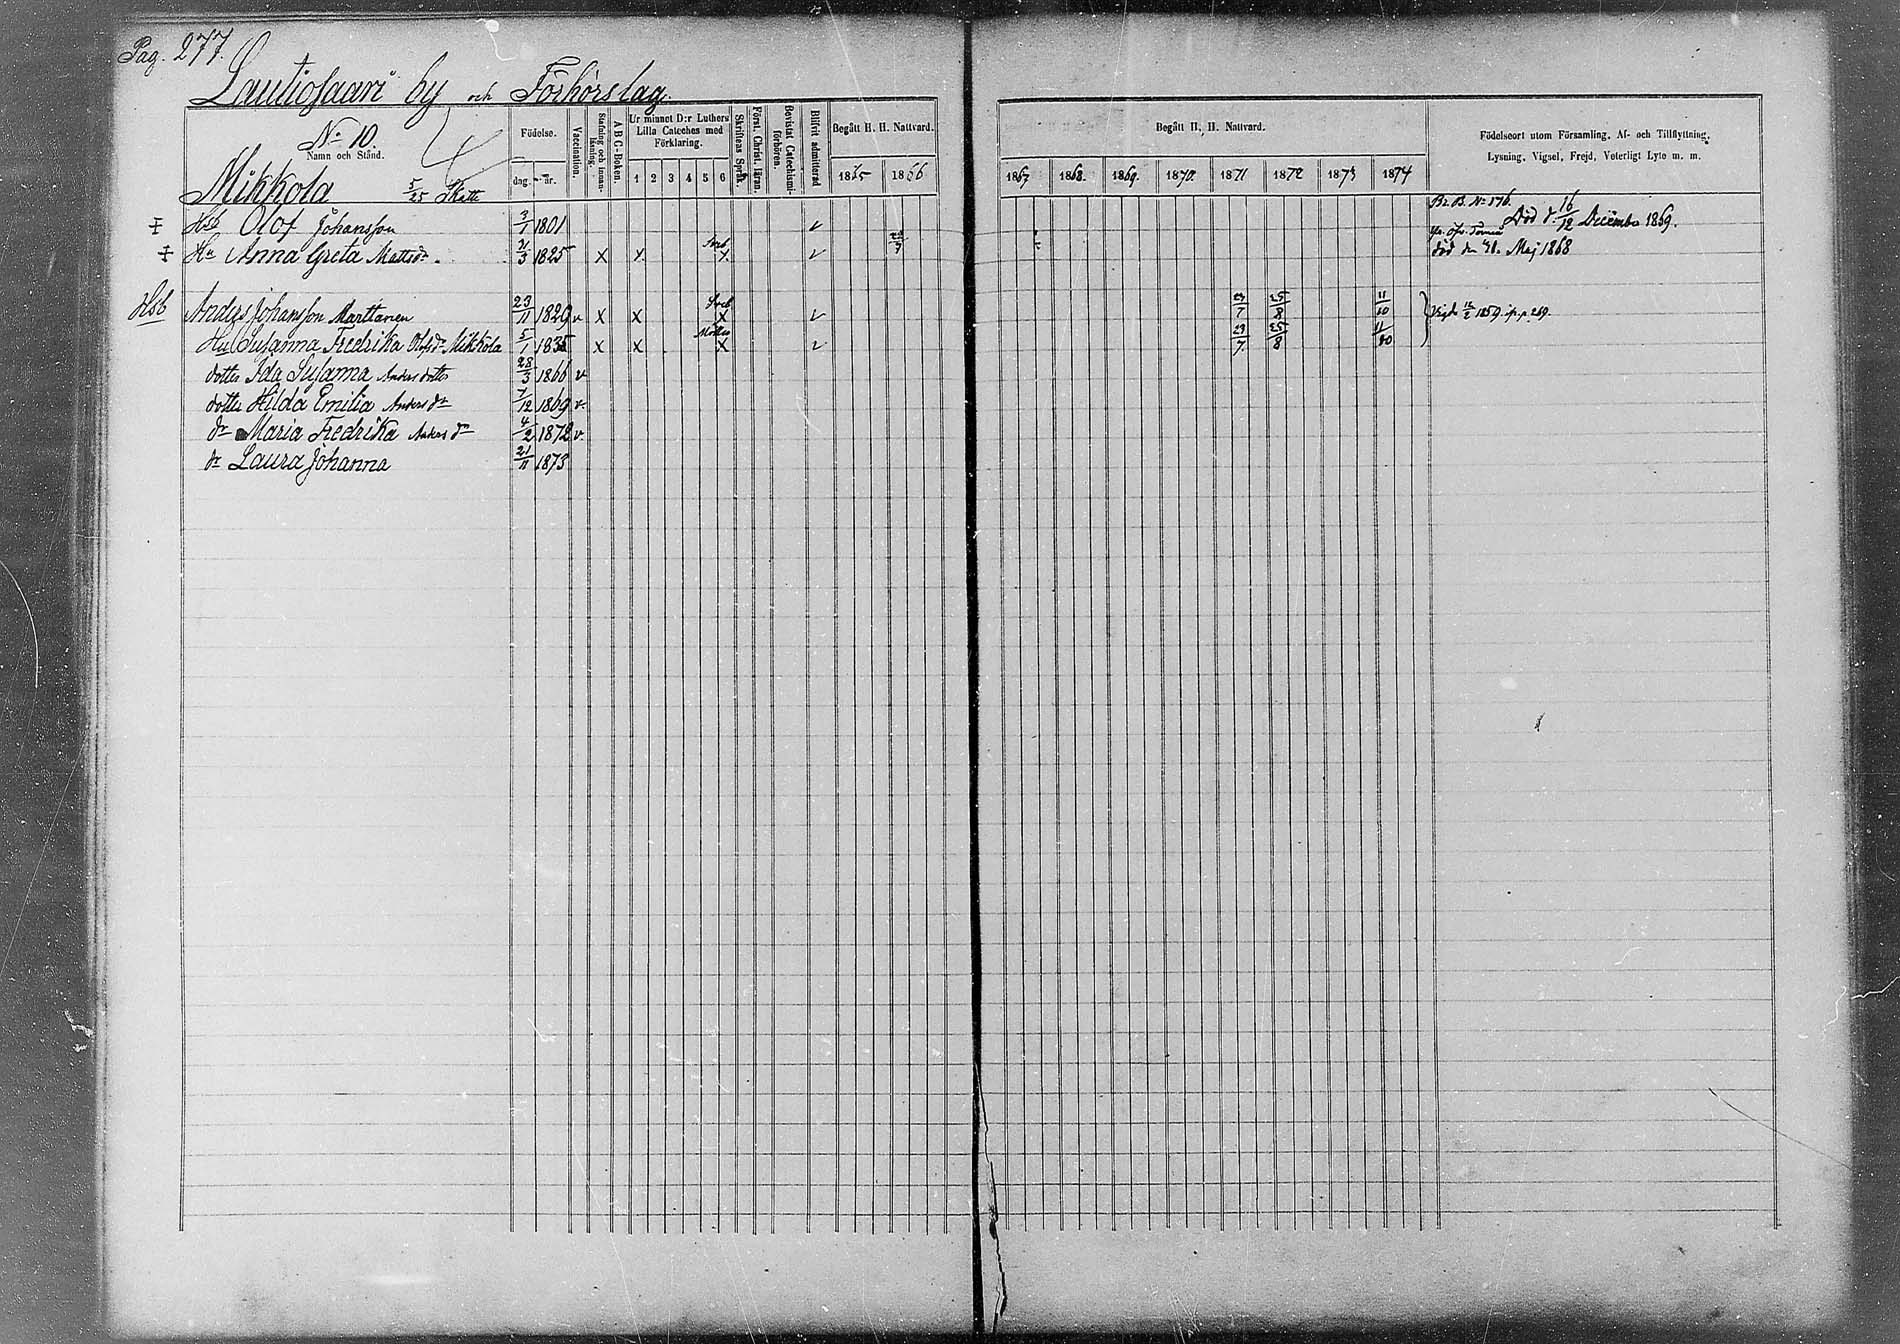 Pag. 277.
Lautiosaari by och Förhörslag.
No 10.
Namn och Stånd.
Födelse.
dag. år.
Vaccination.
Stafning och innan-läsning.
A B C-Boken.
Ur minnet D:r Luthers Lilla Cateches med Förklaring.
1 2 3 4 5 6
Skriftens Språk.
Först. Christ. läran.
Bevistat Catechismi-förhören.
Blifvit admitterad
Begått H. H. Nattvard.
1865 1866
Begått H. H. Nattvard.
1867 1868. 1869. 1870. 1871 1872 1873 1874
Födelseort utom Församling, Af- och Tillflyttning,
Lysning, Vigsel, Frejd, Veterligt Lyte m. m.
Mikkola 5/25 Skatt
Hsb Olof Johansson 3/1 1801 Br. B. No 176. Död d. 16/12 December 1869.
Hu Anna Greta Mattsdr. 21/3 1825 x x x död den 31. Maj 1868
Hsb Anders Johansson Marttanen 23/11 1829 v x x x 23/7 25/8 11/10 Vigde 1859.
Hu Susanna Fredrika Olofsdr Mikkola 5/1 1835 x x x 23/7 25/8 11/10
dotter Ida Susanna Anders dotter 28/3 1866 v
dotter Hilda Emilia Anders dr 7/12 1869 v.
dr Maria Fredrika Anders dr 4/2 1872 v.
dr Laura Johanna 21/11 1873